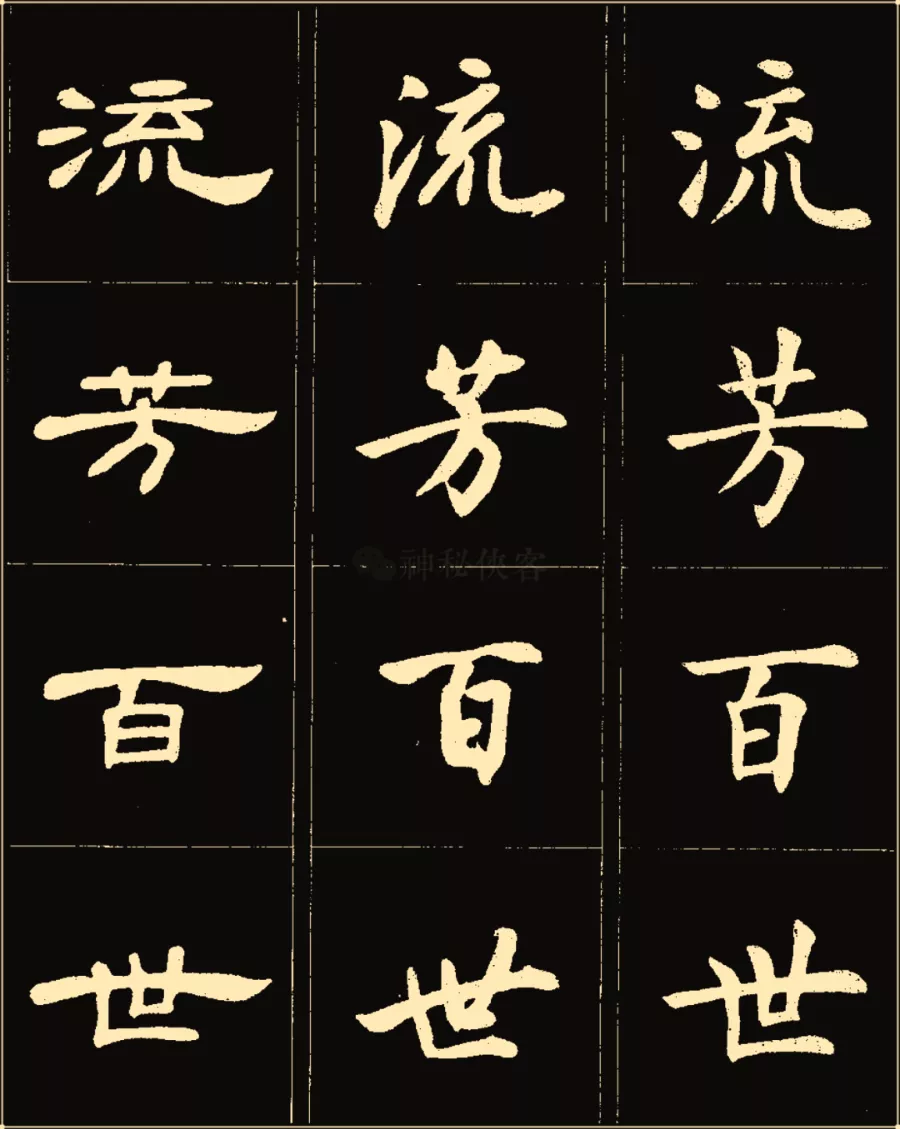 流流流
芳芳芳
神秘侠客
百百百
世世世